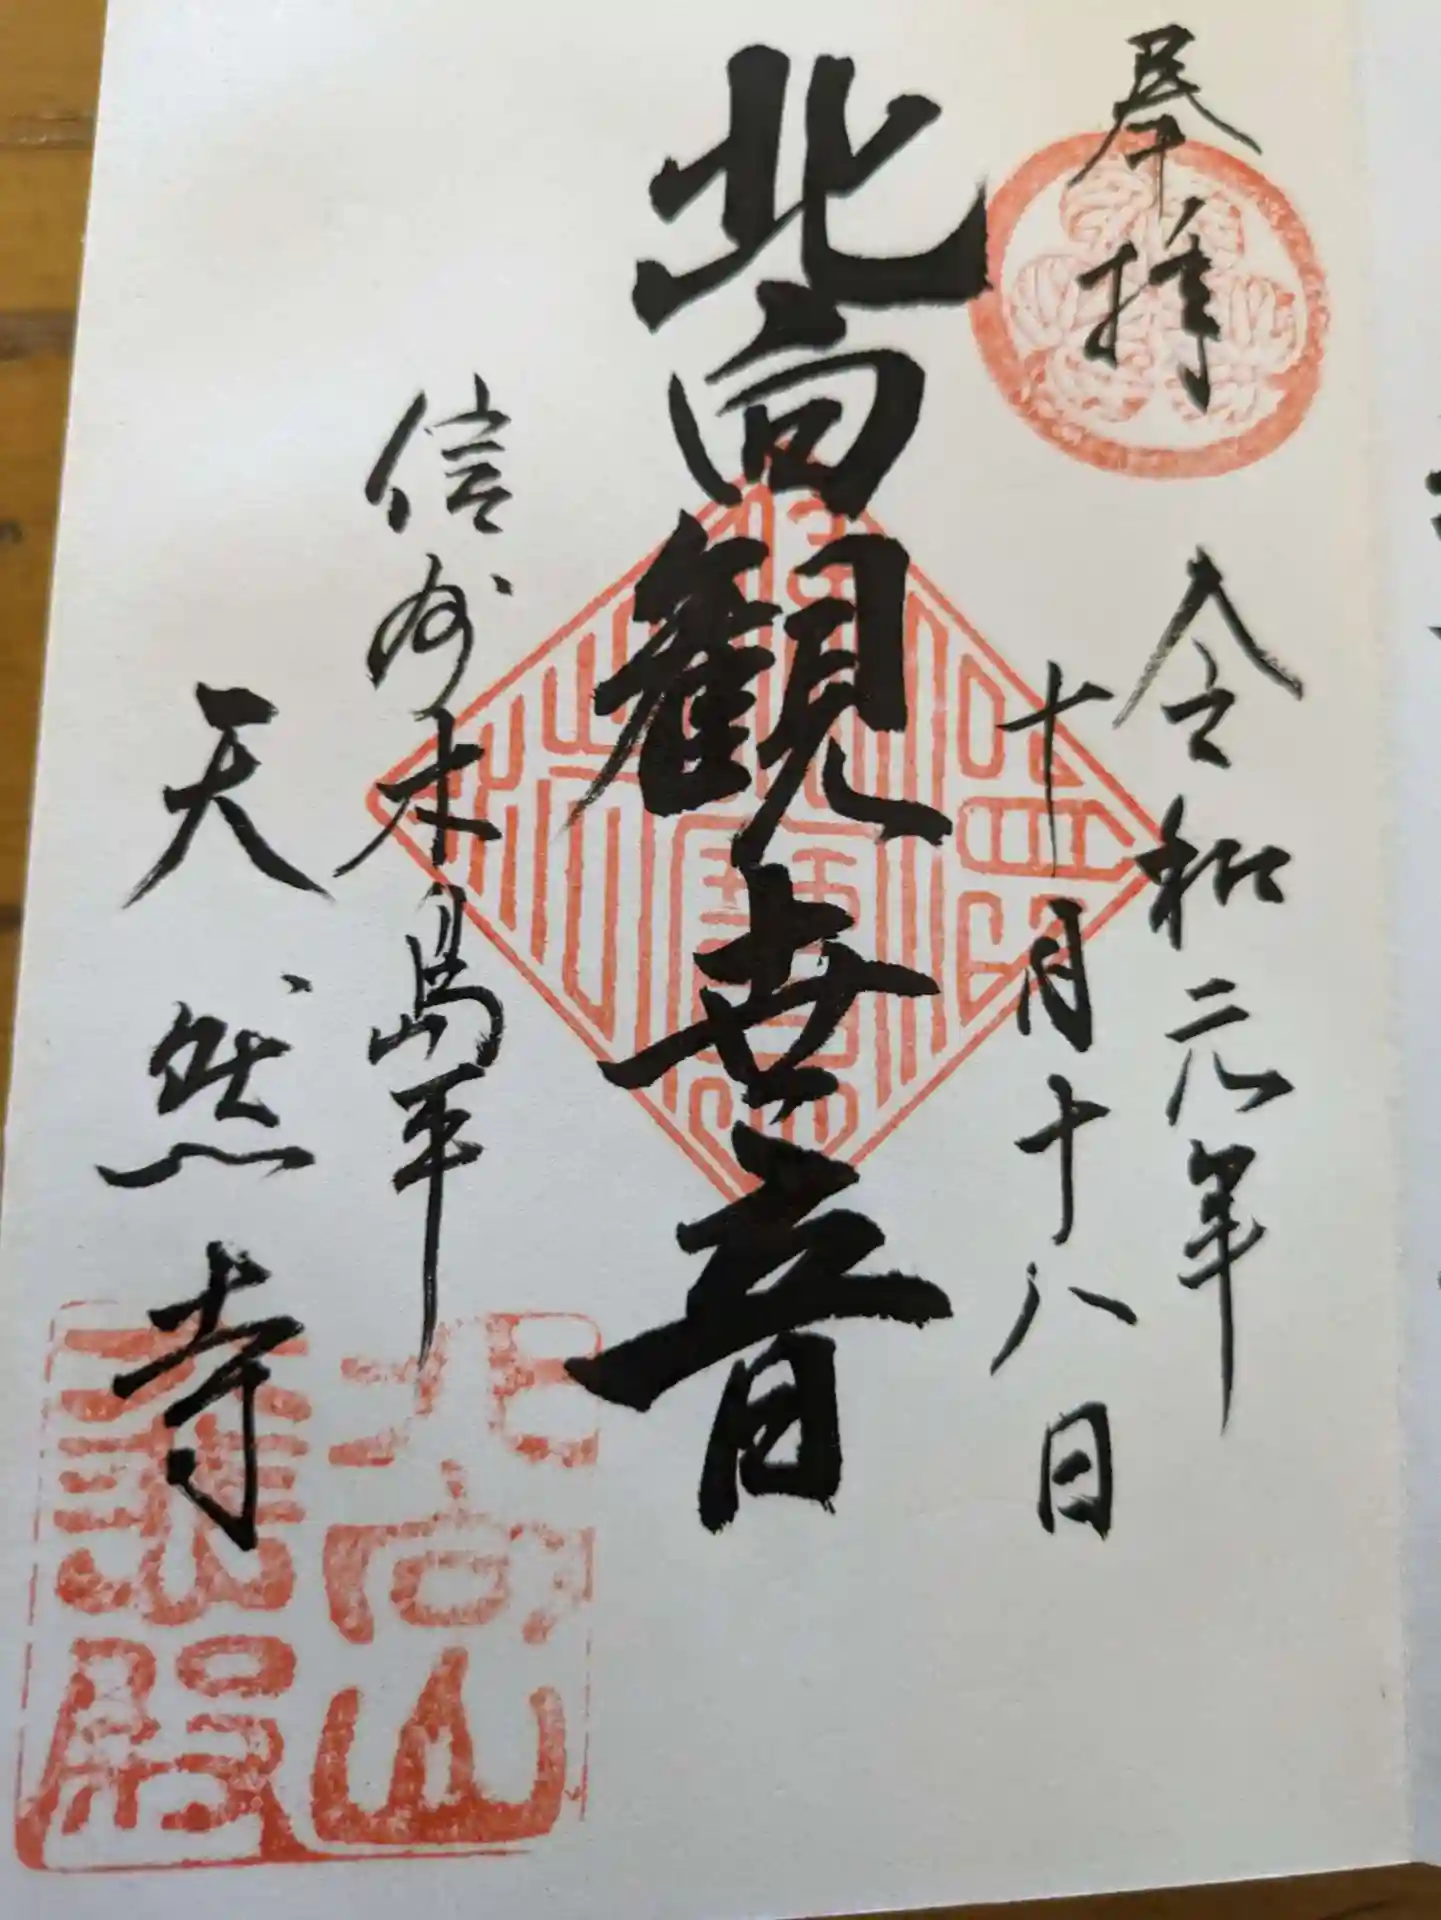 奉拝
令和元年
十月十八日
北向観世音
信州木島平
天然寺